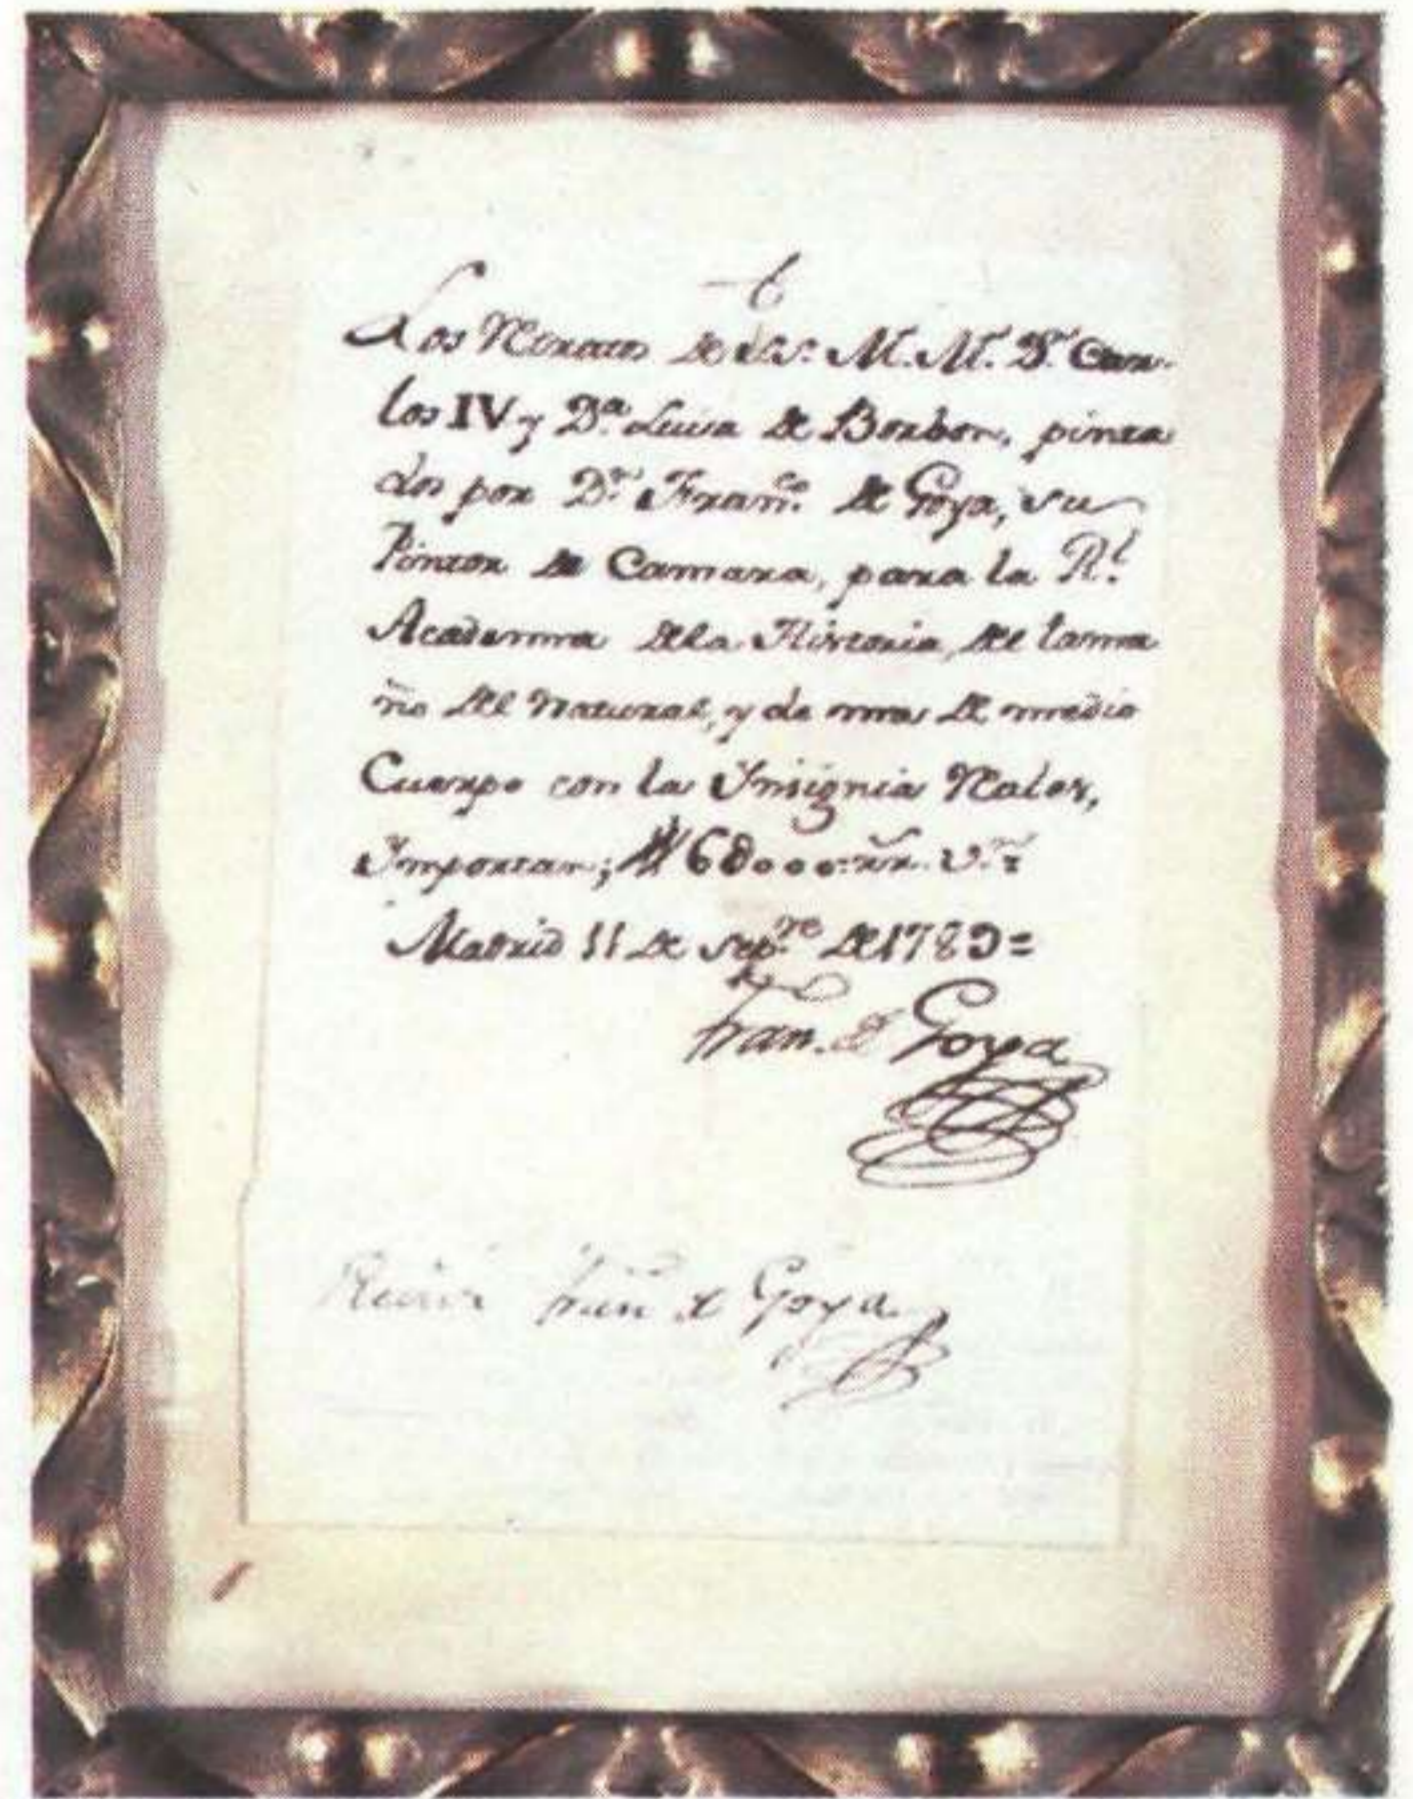 Los Retratos de Ss. M.M. Dn. Car-
los IV y Dª. Luisa de Borbon, pinta
dos por Dn. Franco. de Goya, su
Pintor de Camara, para la Rl.
Academia dela Historia, del tama
ño del Natural, y de mas de medio
Cuerpo con las Insignias Rales,
Importan; 6000 rrs. vn.
Madrid 11 de sepre. de 1789=
Fran. de Goya
Recivi Fran de Goya